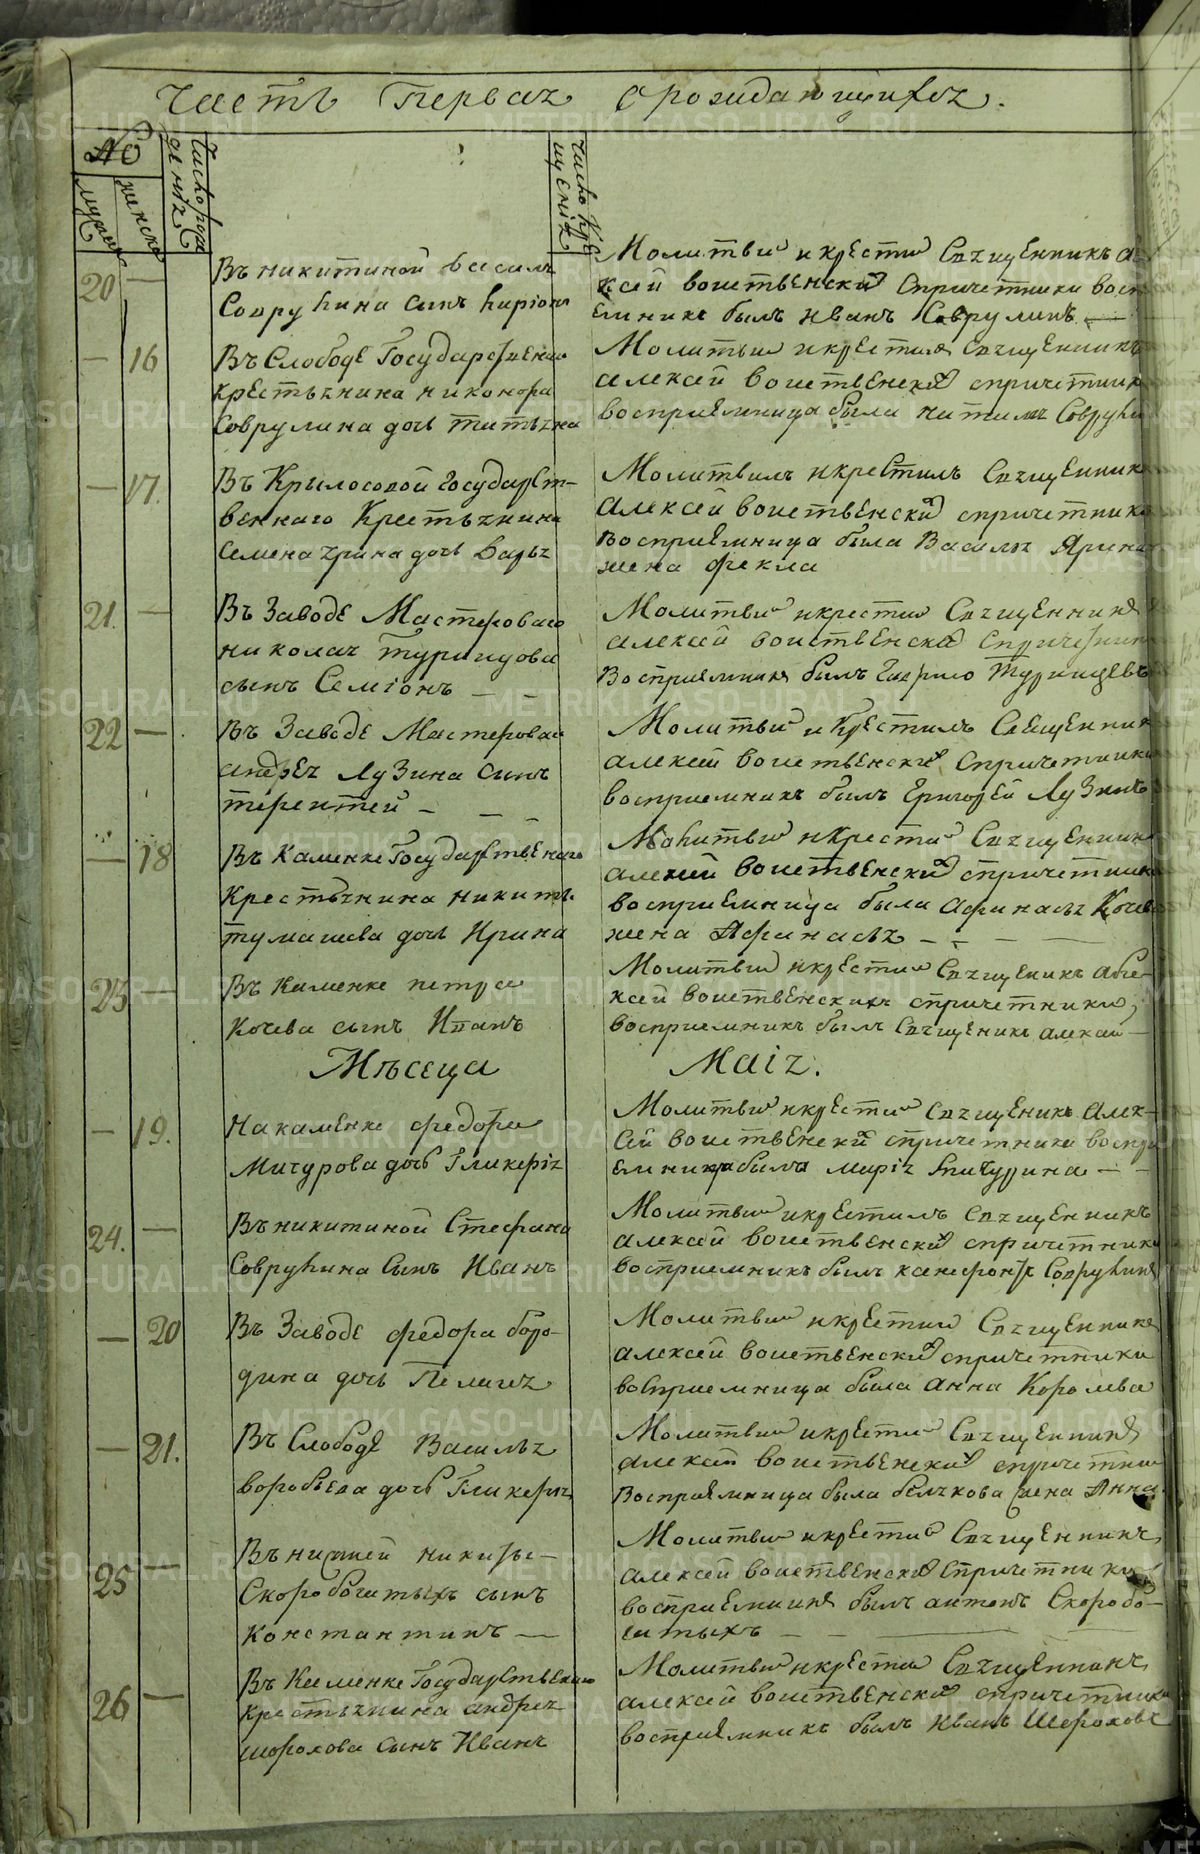 Часть Первая о рождающихся.
№
мужеск
женска
Число рож
денія
Число кре
щенія
20 —
Въ никитиной василья
Саврулина сынъ Іларіонъ
Молитвил и крестил Священникъ але
ксей воиственский спричетники восп
емникъ былъ Иванъ Саврулинъ —
— 16
Въ Слободе Государствена
крестьянина никонора
Саврулина дочь татьяна
Молитвил и крестил Священникъ
алексей воиственский спричетник
восприемница была
— 17.
Въ Крылосовой государст-
веннаго Крестьянина
Семена ярина дочь Варья
Молитвилъ и крестилъ Священник
Алексей воиственский спричетники
восприемница была Василья Ярина
жена фекла
21. —
Въ Заводе Мастероваго
николая Турищова
сынъ Семіонъ — —
Молитвил и крестил Священник
алексей воиственский спричетник
Восприемник былъ Гаврило Турищевъ
22 —
Въ Заводе Мастероваго
андрея Лузина сынъ
терентей —
Молитвил и Крестилъ Священник
алексей воиственский спричетники
восприемникъ былъ Григорей Лузинъ
— 18
Въ Каменке Государственаго
Крестьянина никиты
тумашева дочь Ирина
Молитвил и Крестил Священник
алексей воиственский спричетник
восприемница была афинасья Кочев
жена Афинасья — — —
23 —
Въ Каменке петра
Кочева сынъ Иванъ
Молитвил и крестил Священикъ але-
ксей воиственский спричетники,
восприемникъ былъ Священикъ алексей —
Мѣсеца Маія.
— 19.
На каменке федора
Мичурова дочь Гликерія
Молитвил и крестил Священикъ Алек-
сей воиственский спричетники воспри
емница была марія Мичурина — —
24. —
Въ никитиной Стефана
Саврулина Сынъ Иванъ
Молитвил и крестилъ Священникъ
алексей воиственский спричетники
восприемникъ былъ ксенофонтъ Саврулинъ
— 20
Въ Заводе федора боро-
дина дочь Пелагея
Молитвил и крестил Священникъ
алексей воиственский спричетники
восприемница была Анна Королева
— 21.
Въ Слободе Василья
воробьева дочь Гликерья
Молитвил и крестил Священник
алексей воиственский спричетник
Восприемница была белькова жена Анна
25 —
Въ нижней никиты
Скоробогатыхъ сынъ
Константинъ —
Молитвил и крестил Священникъ
алексей воиственский Спричетники
восприемник былъ антонъ Скоробо-
гатыхъ — —
26 —
Въ Каменке Государственаго
крестьянина андрея
шорохова сынъ Иванъ
Молитвил и крестил Священникъ
алексей воиственский спричетники
восприемникъ былъ Иванъ Шороховъ
METRIKI.GASO-URAL.RU